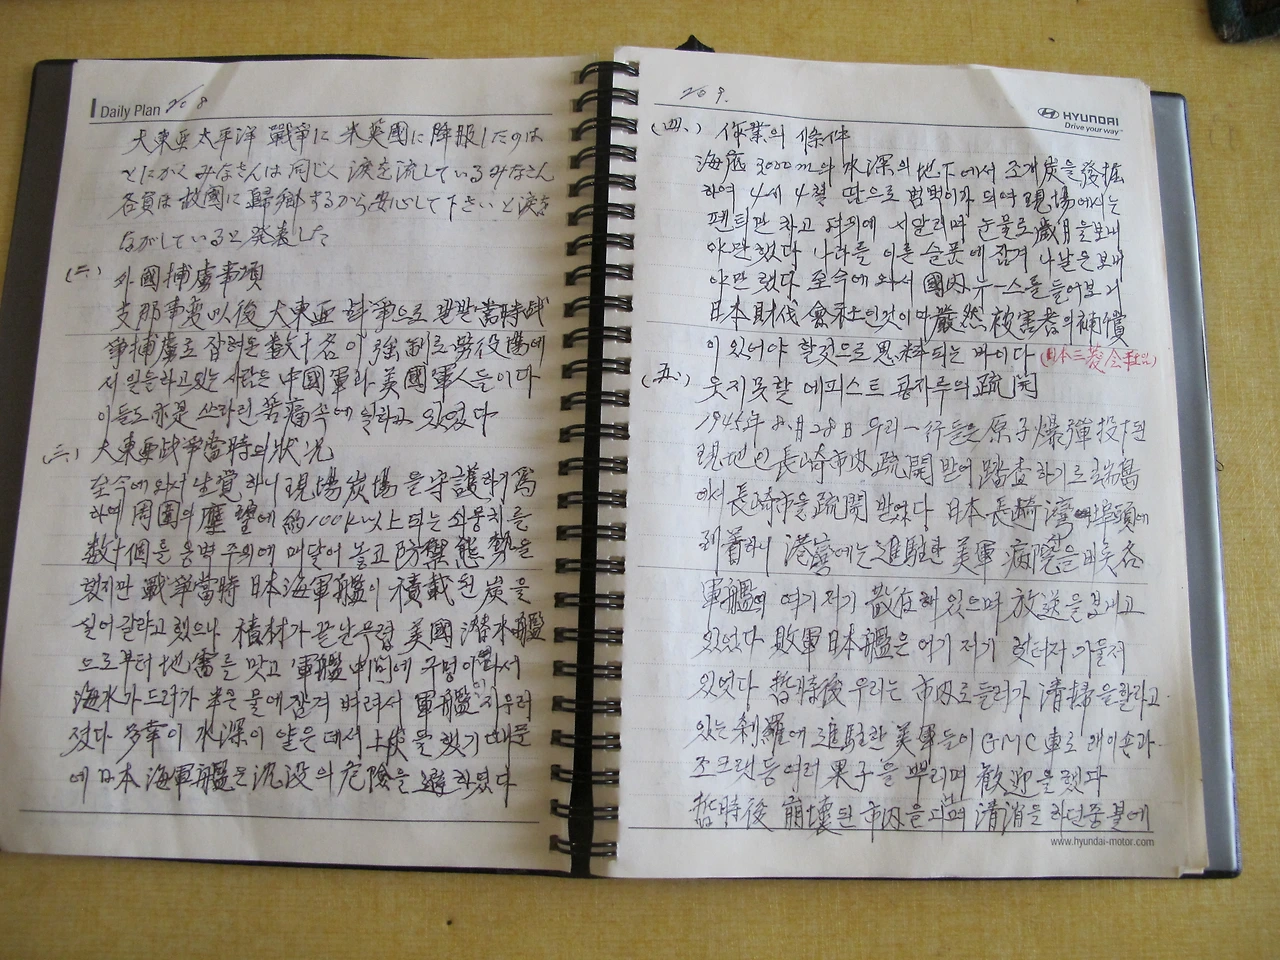 Daily Plan 208
大東亞太平洋 戰爭に 米英國に 降服したのは
とにかく みなさんは 同じく 淚を流している みなさん
各員は 故國に 歸鄕するから 安心して 下さい と淚を
ながしていると 発表した
(二、) 外國捕虜事項
支那事変以後 大東亞 戰爭으로 當時 战
争捕虜로 잡려온 数十名이 強制로 労役場에
서 일들하고 있는 사람은 中國軍과 美國軍人들이다
이들도 亦是 쓰라린 苦痛속에 일하고 있었다
(三、) 大東亞战爭當時의 狀况
至今에 와서 生覚하니 現場炭場을 守護하기 爲
하여 周囲의 에 約100k以上되는 쇠뭉치를
数十個를 옹벽 주위에 매달어 놓고 防禦態勢을
했지만 戰爭當時 日本海軍艦이 積載된 炭을
실어 갈라고 했으나 積材가 끝난무렵 美國 潜水艦
으로부터 地雷를 맞고 軍艦 中間에 구멍이 나서
海水가 드러가 半은 물에 잠겨 버려서 軍艦이 지우러
졌다 多幸이 水深이 얕은데서 上炭을 했기 때문
에 日本 海軍艦은 沈没의 危險을 避하였다
209.
HYUNDAI
Drive your way
(四、) 作業의 條件
海底 3000m의 水深의 地下에서 조개炭을 發掘
하여 4시 4철 땀으로 범벅이가 되여 現場에서는
팬티만 차고 더위에 시달리며 눈물로 歲月을 보내
야만 했다 나라를 잃은 슬픔에 잠겨 나날을 보내
야만 했다 至今에 와서 國內 뉴ー스를 들어보니
日本財伐 會社인것이다 嚴然 被害者의 補償
이 있어야 할것으로 思料되는 바이다 (日本三菱会社임)
(五、) 웃지못할 에피스트 疏開
1945年 8月28日 우리 一行들은 原子爆弾 投下된
現地인 長崎市內 疏開 받어 踏査하기로 端島
에서 長崎市을 疏開 받었다 日本 長崎 灣 埠頭에
到着하니 港灣에는 進駐한 美軍 病院船을 비롯 各
軍艦이 여기저기 散在하여 있으며 放送을 보내고
있었다 敗軍 日本艦은 여기 저기 헛터저 나둘저
있엇다 暫時後 우리는 市內로 들러가 淸掃을 한다고
있는 利羅에 進駐한 美軍들이 GMC車로 레이숀과
조크렛등 여러 菓子을 뿌리며 歡迎을 했다
暫時後 崩壞된 市內을 淸消을 하던중 봄에
www.hyundai-motor.com